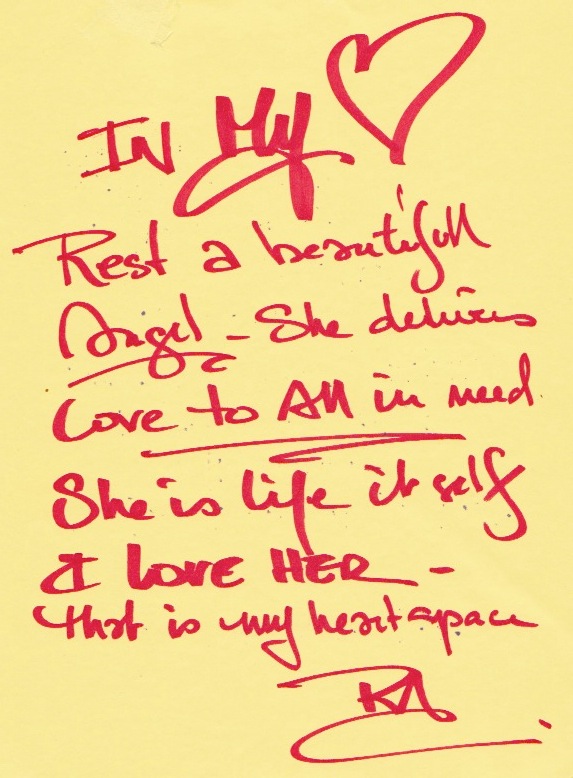 IN My ♡
Rest a beautifull
Angel - She delivers
Love to All in need
She is life it self
I LOVE HER -
that is my heart space
KA